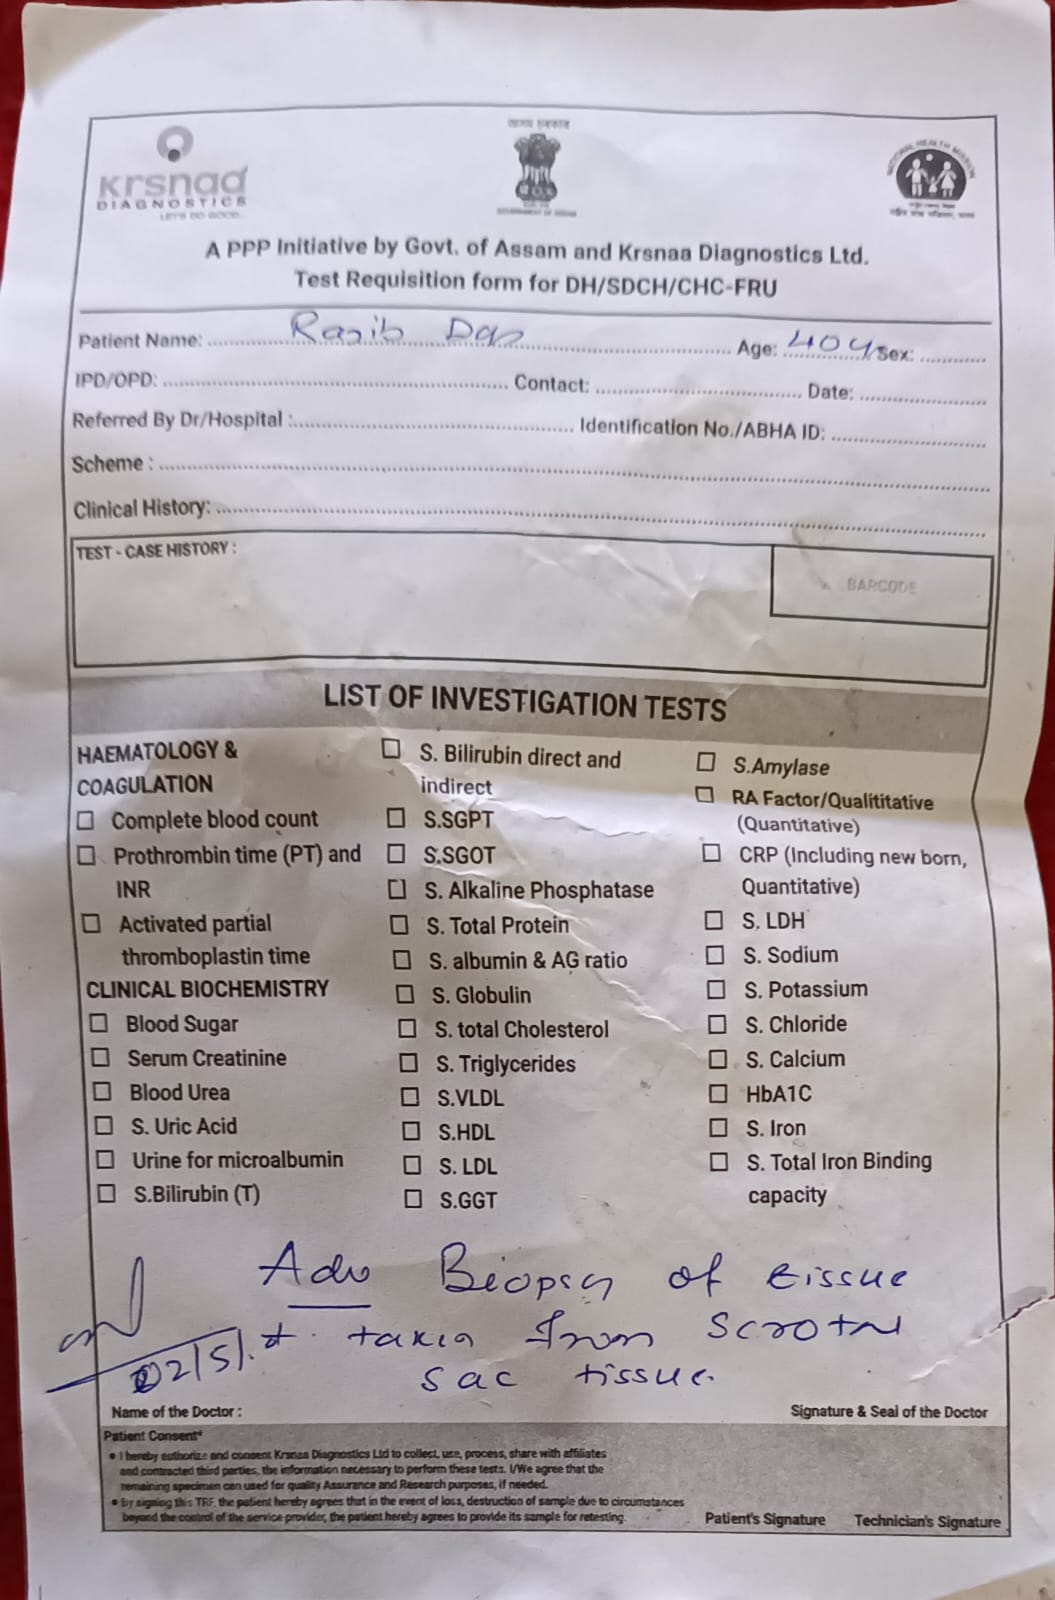 krsnaa
DIAGNOSTICS
LET'S DO GOOD
অসম চৰকাৰ
GOVERNMENT OF ASSAM
NATIONAL HEALTH MISSION
A PPP Initiative by Govt. of Assam and Krsnaa Diagnostics Ltd.
Test Requisition form for DH/SDCH/CHC-FRU
Patient Name: Rajib Das Age: 40y Sex:
IPD/OPD: Contact: Date:
Referred By Dr/Hospital : Identification No./ABHA ID:
Scheme :
Clinical History:
TEST - CASE HISTORY :
BARCODE
LIST OF INVESTIGATION TESTS
HAEMATOLOGY &
COAGULATION
Complete blood count
Prothrombin time (PT) and
INR
Activated partial
thromboplastin time
CLINICAL BIOCHEMISTRY
Blood Sugar
Serum Creatinine
Blood Urea
S. Uric Acid
Urine for microalbumin
S.Bilirubin (T)
S. Bilirubin direct and
indirect
S.SGPT
S.SGOT
S. Alkaline Phosphatase
S. Total Protein
S. albumin & AG ratio
S. Globulin
S. total Cholesterol
S. Triglycerides
S.VLDL
S.HDL
S. LDL
S.GGT
S.Amylase
RA Factor/Qualititative
(Quantitative)
CRP (Including new born,
Quantitative)
S. LDH
S. Sodium
S. Potassium
S. Chloride
S. Calcium
HbA1C
S. Iron
S. Total Iron Binding
capacity
Adv Biopsy of tissue
taken from scrotal
sac tissue.
Name of the Doctor :
Signature & Seal of the Doctor
Patient Consent*
I hereby authorize and consent Krsnaa Diagnostics Ltd to collect, use, process, share with affiliates
and contracted third parties, the information necessary to perform these tests. I/We agree that the
remaining specimen can used for quality Assurance and Research purposes, if needed.
By signing this TRF, the patient hereby agrees that in the event of loss, destruction of sample due to circumstances
beyond the control of the service provider, the patient hereby agrees to provide its sample for retesting.
Patient's Signature Technician's Signature